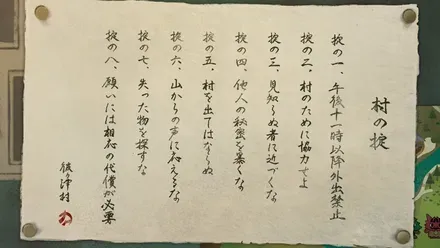 村の掟
掟の一、午後十一時以降外出禁止
掟の二、村のために協力せよ
掟の三、見知らぬ者に近づくな
掟の四、他人の秘密を暴くな
掟の五、村を出てはならぬ
掟の六、山からの声に応えるな
掟の七、失った物を探すな
掟の八、願いには相応の代償が必要